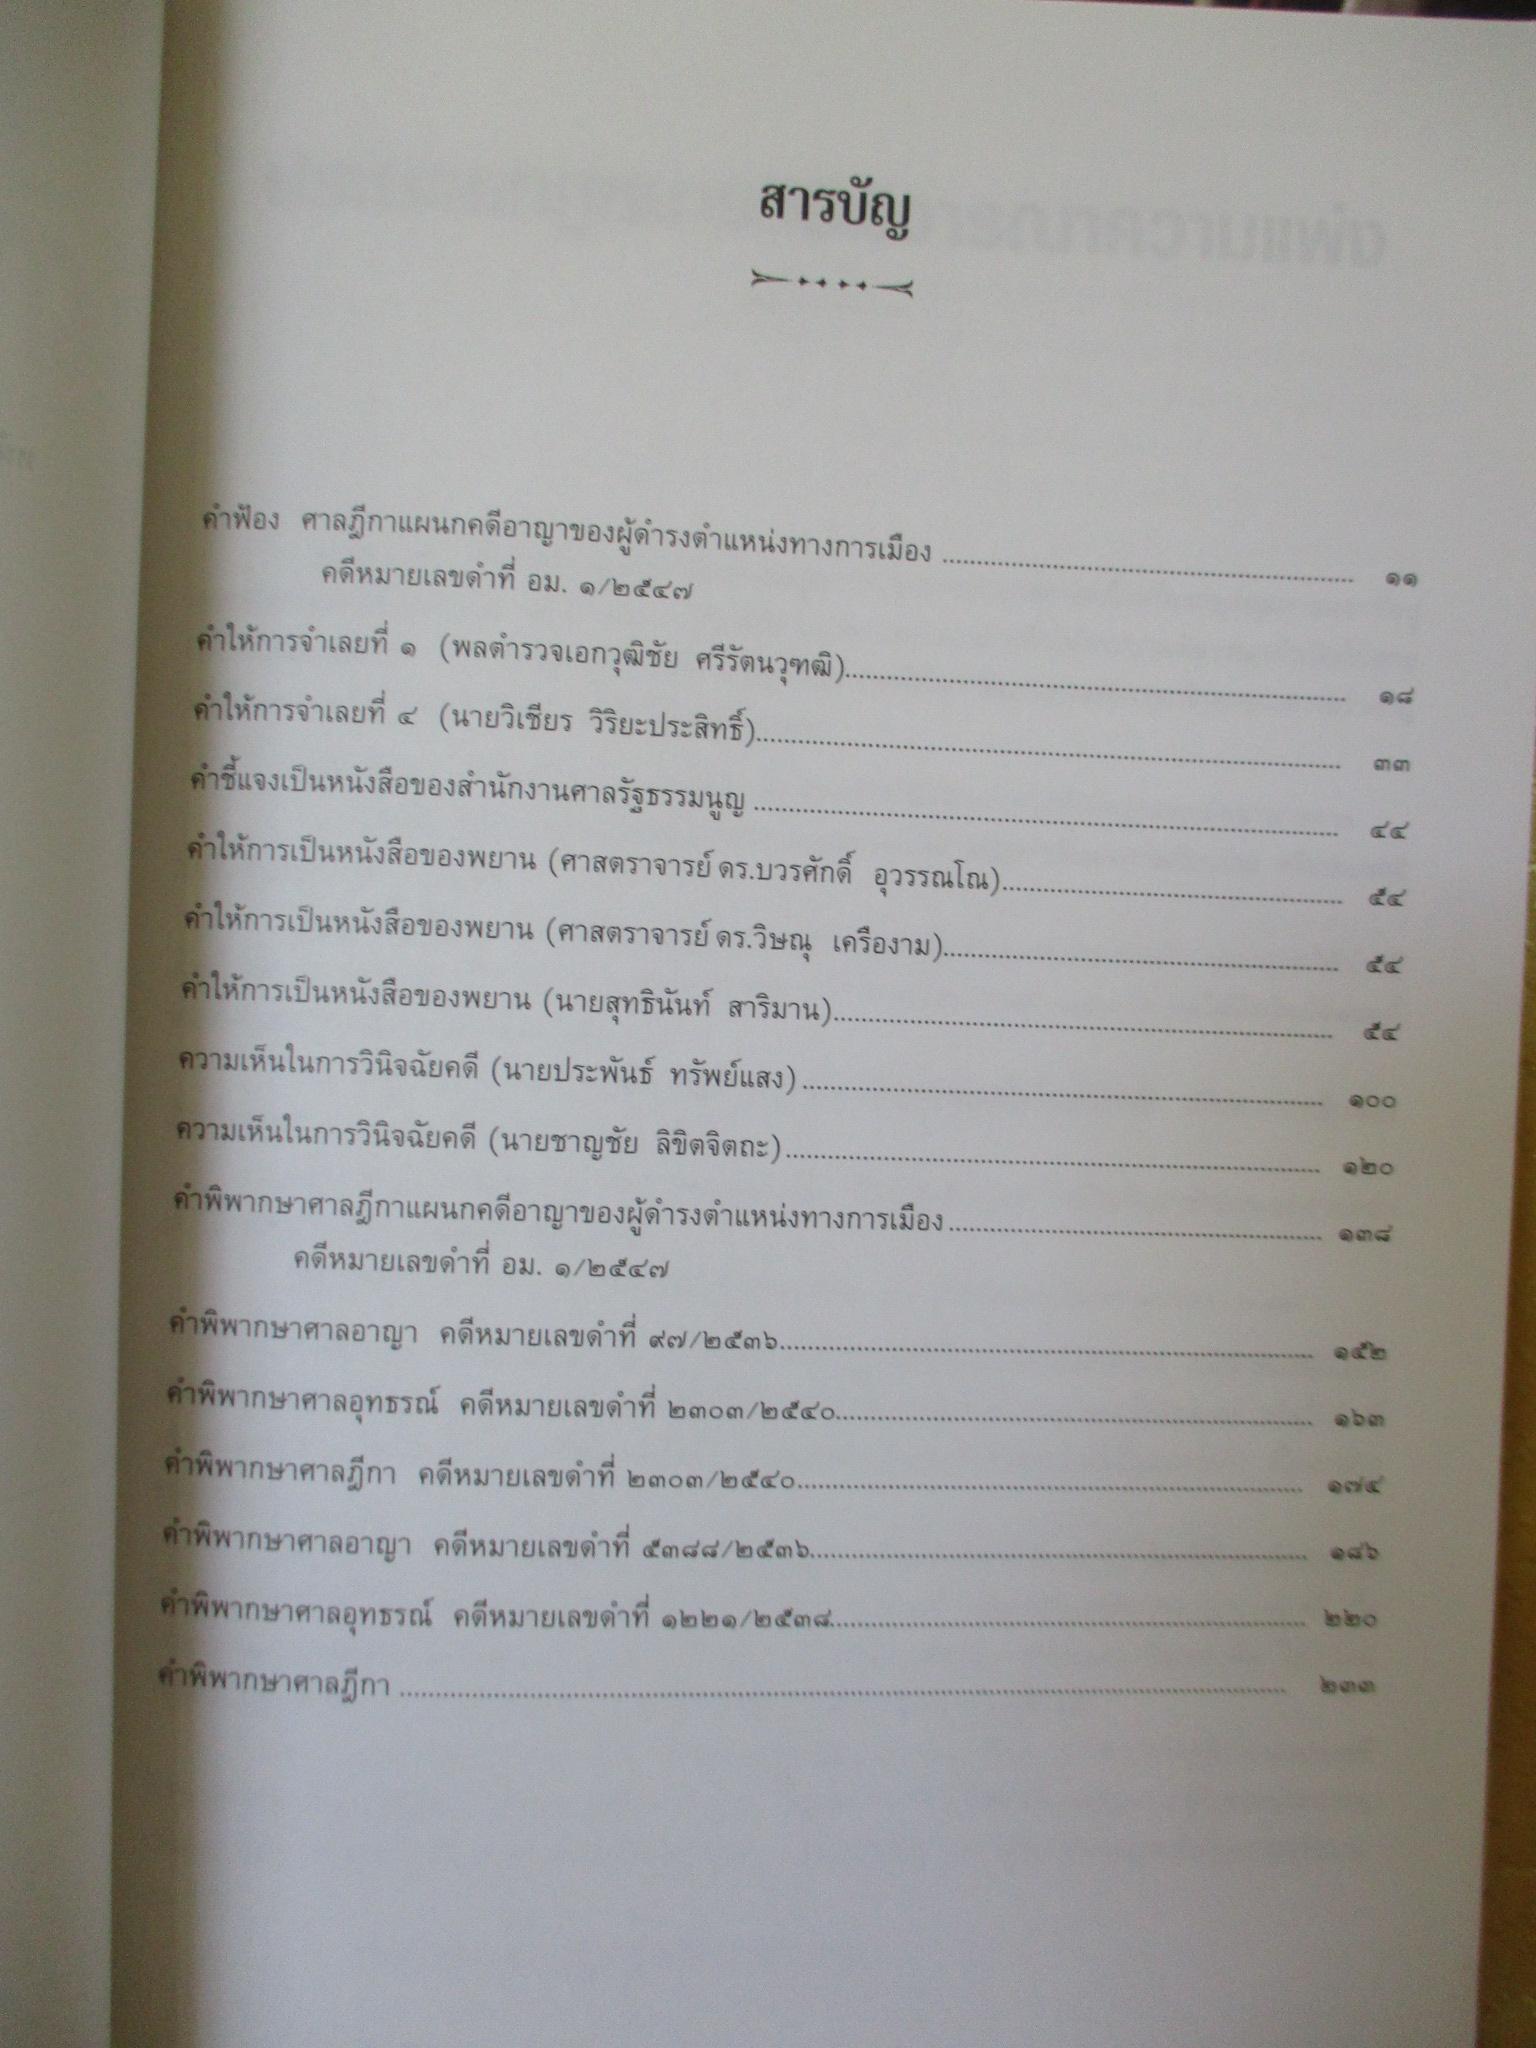 สารบัญ
คำฟ้อง ศาลฎีกาแผนกคดีอาญาของผู้ดำรงตำแหน่งทางการเมือง ๑๑
คดีหมายเลขดำที่ อม. ๑/๒๕๔๗
คำให้การจำเลยที่ ๑ (พลตำรวจเอกวุฒิชัย ศรีรัตนวุฑฒิ) ๑๘
คำให้การจำเลยที่ ๔ (นายวิเชียร วิริยะประสิทธิ์) ๓๓
คำชี้แจงเป็นหนังสือของสำนักงานศาลรัฐธรรมนูญ ๔๔
คำให้การเป็นหนังสือของพยาน (ศาสตราจารย์ ดร.บวรศักดิ์ อุวรรณโณ) ๕๔
คำให้การเป็นหนังสือของพยาน (ศาสตราจารย์ ดร.วิษณุ เครืองาม) ๕๔
คำให้การเป็นหนังสือของพยาน (นายสุทธินันท์ สาริมาน) ๕๔
ความเห็นในการวินิจฉัยคดี (นายประพันธ์ ทรัพย์แสง) ๑๐๐
ความเห็นในการวินิจฉัยคดี (นายชาญชัย ลิขิตจิตถะ) ๑๒๐
คำพิพากษาศาลฎีกาแผนกคดีอาญาของผู้ดำรงตำแหน่งทางการเมือง ๑๓๘
คดีหมายเลขดำที่ อม. ๑/๒๕๔๗
คำพิพากษาศาลอาญา คดีหมายเลขดำที่ ๙๗/๒๕๓๖ ๑๕๒
คำพิพากษาศาลอุทธรณ์ คดีหมายเลขดำที่ ๒๓๐๓/๒๕๔๐ ๑๖๓
คำพิพากษาศาลฎีกา คดีหมายเลขดำที่ ๒๓๐๓/๒๕๔๐ ๑๗๕
คำพิพากษาศาลอาญา คดีหมายเลขดำที่ ๕๓๘๘/๒๕๓๖ ๑๘๖
คำพิพากษาศาลอุทธรณ์ คดีหมายเลขดำที่ ๑๒๒๑/๒๕๓๘ ๒๒๐
คำพิพากษาศาลฎีกา ๒๓๓